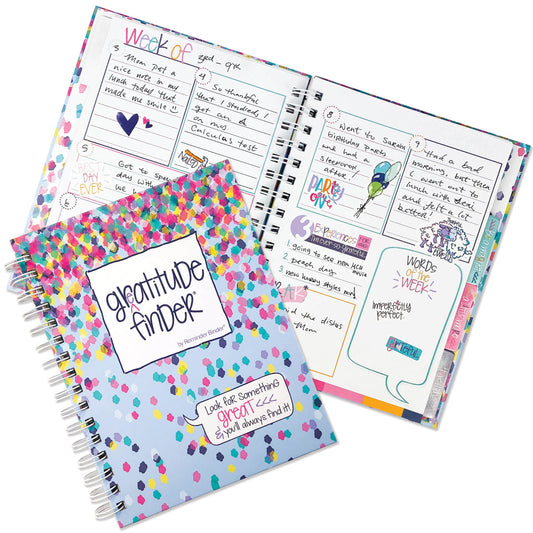 Week of 3rd - 9th
3 Mom put a
nice note in my
lunch today that
made me smile
4 So thankful
that I studied, I
got an A
on my
Calculus test
Nailed it
5
BEST
DAY
EVER
Got to
day with
6
8 Went to Sarah's
birthday party
and had a
sleepover
after.
PARTY
time
9 Had a bad
morning, but then
I went out to
lunch with
and felt a lot
better!
3 Experiences
I'm ever-so-grateful
1. going to see new
movie
2. peach day
3. new
the dishes
Mom
WORDS
of the
WEEK
imperfectly
perfect.
grateful
greatitude
finder
by Reminder Binder®
Look for something
great <<<
& you'll always find it!